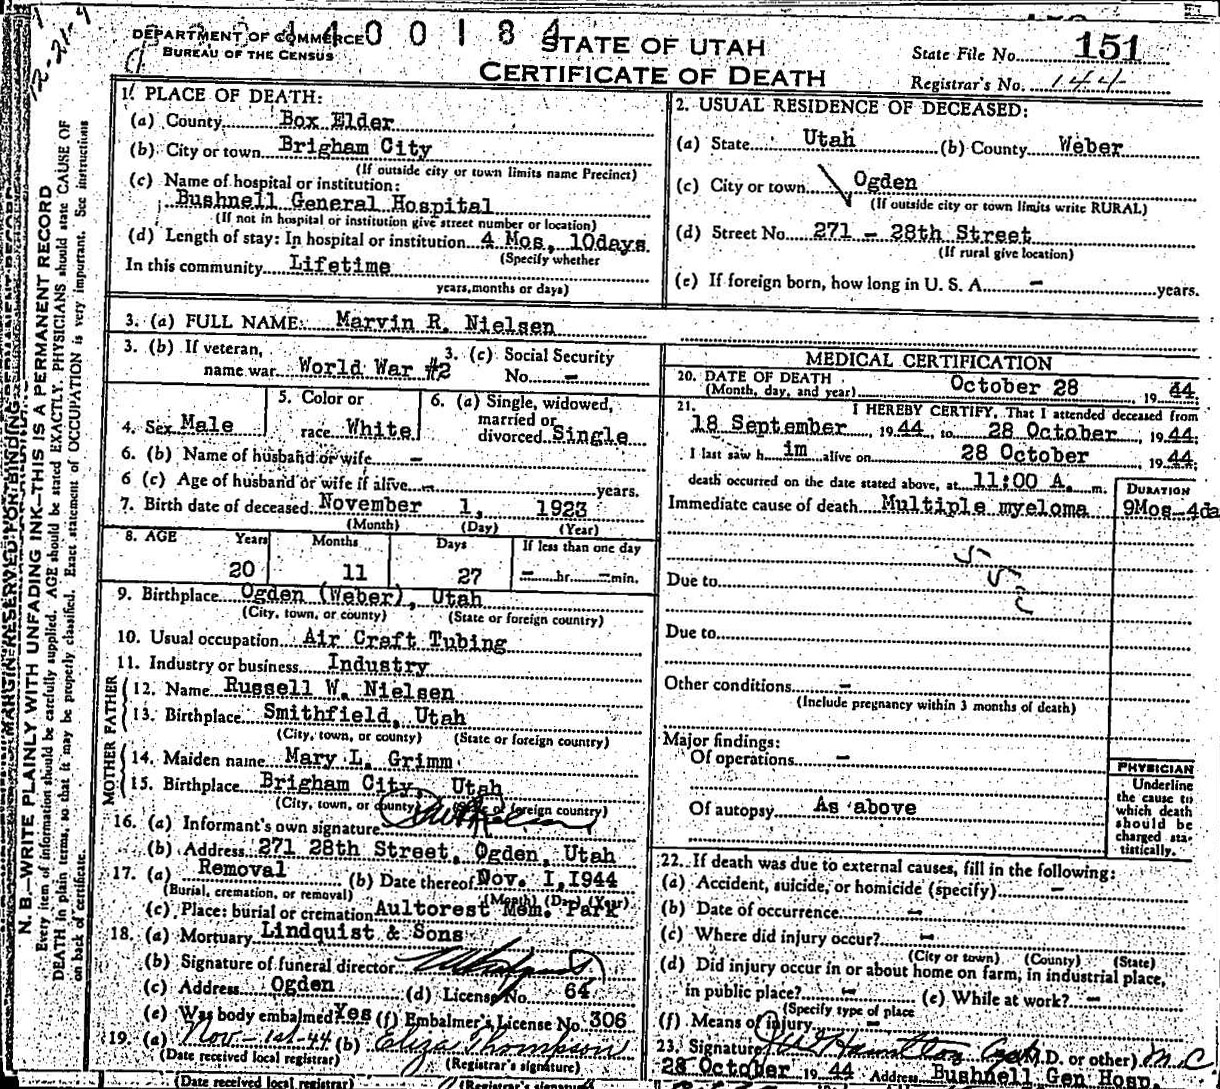 DEPARTMENT OF COMMERCE
BUREAU OF THE CENSUS
00184
STATE OF UTAH
CERTIFICATE OF DEATH
State File No. 151
Registrar's No. 144
MARGIN RESERVED FOR BINDING
N. B.—WRITE PLAINLY WITH UNFADING INK—THIS IS A PERMANENT RECORD
Every item of information should be carefully supplied. AGE should be stated EXACTLY. PHYSICIANS should state CAUSE OF
DEATH in plain terms, so that it may be properly classified. Exact statement of OCCUPATION is very important. See instructions
on back of certificate.
1. PLACE OF DEATH:
(a) County Box Elder
(b) City or town Brigham City
(If outside city or town limits name Precinct)
(c) Name of hospital or institution:
Bushnell General Hospital
(If not in hospital or institution give street number or location)
(d) Length of stay: In hospital or institution 4 Mos, 10days
(Specify whether
In this community Lifetime
years, months or days)
2. USUAL RESIDENCE OF DECEASED:
(a) State Utah (b) County Weber
(c) City or town Ogden
(If outside city or town limits write RURAL)
(d) Street No. 271 - 28th Street
(If rural give location)
(e) If foreign born, how long in U. S. A. - years.
3. (a) FULL NAME: Marvin R. Nielsen
3. (b) If veteran,
name war World War #2
3. (c) Social Security
No. -
4. Sex Male
5. Color or
race White
6. (a) Single, widowed,
married or
divorced Single
6. (b) Name of husband or wife -
6 (c) Age of husband or wife if alive - years.
7. Birth date of deceased November 1, 1923
(Month) (Day) (Year)
8. AGE Years Months Days If less than one day
20 11 27 - hr. - min.
9. Birthplace Ogden (Weber), Utah
(City, town, or county) (State or foreign country)
10. Usual occupation Air Craft Tubing
11. Industry or business Industry
FATHER
12. Name Russell W. Nielsen
13. Birthplace Smithfield, Utah
(City, town, or county) (State or foreign country)
MOTHER
14. Maiden name Mary L. Grimm
15. Birthplace Brigham City, Utah
(City, town, or county) (State or foreign country)
16. (a) Informant's own signature
(b) Address 271 28th Street, Ogden, Utah
17. (a) Removal (b) Date thereof Nov. 1, 1944
(Burial, cremation, or removal) (Month) (Day) (Year)
(c) Place: burial or cremation Aultorest Mem. Park
18. (a) Mortuary Lindquist & Sons
(b) Signature of funeral director
(c) Address Ogden (d) License No. 64
(e) Was body embalmed? Yes (f) Embalmer's License No. 306
19. (a) Nov-1st-44 (b) Eliza Thompson
(Date received local registrar) (Registrar's signature)
(Date received local registrar) (Registrar's signature)
MEDICAL CERTIFICATION
20. DATE OF DEATH
(Month, day, and year) October 28, 1944.
21. I HEREBY CERTIFY, That I attended deceased from
18 September, 1944, to 28 October, 1944;
I last saw him alive on 28 October, 1944;
death occurred on the date stated above, at 11:00 A. m.
DURATION
Immediate cause of death Multiple myeloma 9Mos-4da
Due to
Due to
Other conditions -
(Include pregnancy within 3 months of death)
Major findings:
Of operations -
Of autopsy As above
PHYSICIAN
Underline
the cause to
which death
should be
charged sta-
tistically.
22. If death was due to external causes, fill in the following:
(a) Accident, suicide, or homicide (specify) -
(b) Date of occurrence -
(c) Where did injury occur? -
(City or town) (County) (State)
(d) Did injury occur in or about home on farm, in industrial place,
in public place? - (e) While at work? -
(Specify type of place
(f) Means of injury -
23. Signature Hamilton Capt (M.D. or other) M C
28 October 1944 Address Bushnell Gen Hosp